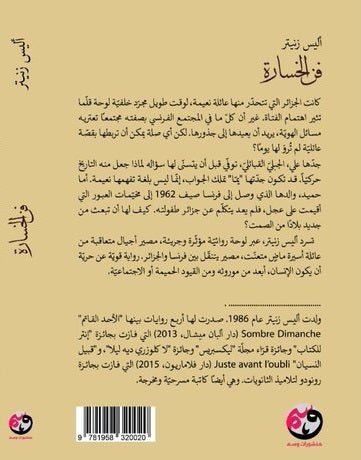 أليس زنيتر
فن الخسارة
كانت الجزائر التي تتحدّر منها عائلة نعيمة، لوقت طويل مجرّد خلفيّة لوحة قلّما
تثير اهتمام الفتاة. غير أن كلّ ما في المجتمع الفرنسي بصفته مجتمعاً تعتريه
مسائل الهويّة، يريد أن يعيدها إلى جذورها. لكن أي صلة يمكن أن تربطها بقصّة
عائليّة لم تُروَ لها يوماً؟
جدّها علي، الجبليّ القبائليّ، توفّي قبل أن يتسنّى لها سؤاله لماذا جعل منه التاريخ
حركيّاً. قد تكون جدّتها "يمّا" تملك الجواب، إنّما ليس بلغة تفهمها نعيمة. أما
حميد، والدها الذي وصل إلى فرنسا صيف 1962 إلى مخيّمات العبور التي
أقيمت على عجل، فلم يعد يتكلّم عن جزائر طفولته. كيف لها أن تبعث من
جديد بلاداً من الصمت؟
تسرد أليس زنيتر، عبر لوحة روائيّة مؤثّرة وجريئة، مصير أجيال متعاقبة من
عائلة أسيرة ماضٍ متعنّت، مصير يتنقّل بين فرنسا والجزائر. رواية قويّة عن حريّة
أن يكون الإنسان، أبعد من موروثه ومن القيود الحميمة أو الاجتماعيّة.
ولدت أليس زنيتر عام 1986. صدرت لها أربع روايات بينها "الأحد القاتم"
Sombre Dimanche (دار ألبان ميشال، 2013) التي فازت بجائزة "إنتر
للكتاب" وجائزة قرّاء مجلّة "ليكسبريس" وجائزة "لا كلوزري ديه ليلا"، و"قبيل
النسيان" Juste avant l'oubli (دار فلاماريون، 2015) التي فازت بجائزة
رونودو لتلاميذ الثانويات. وهي أيضاً كاتبة مسرحيّة ومخرجة.
9 781958 320020
منشورات وسم
أليس زنيتر
فن الخسارة
منشورات وسم